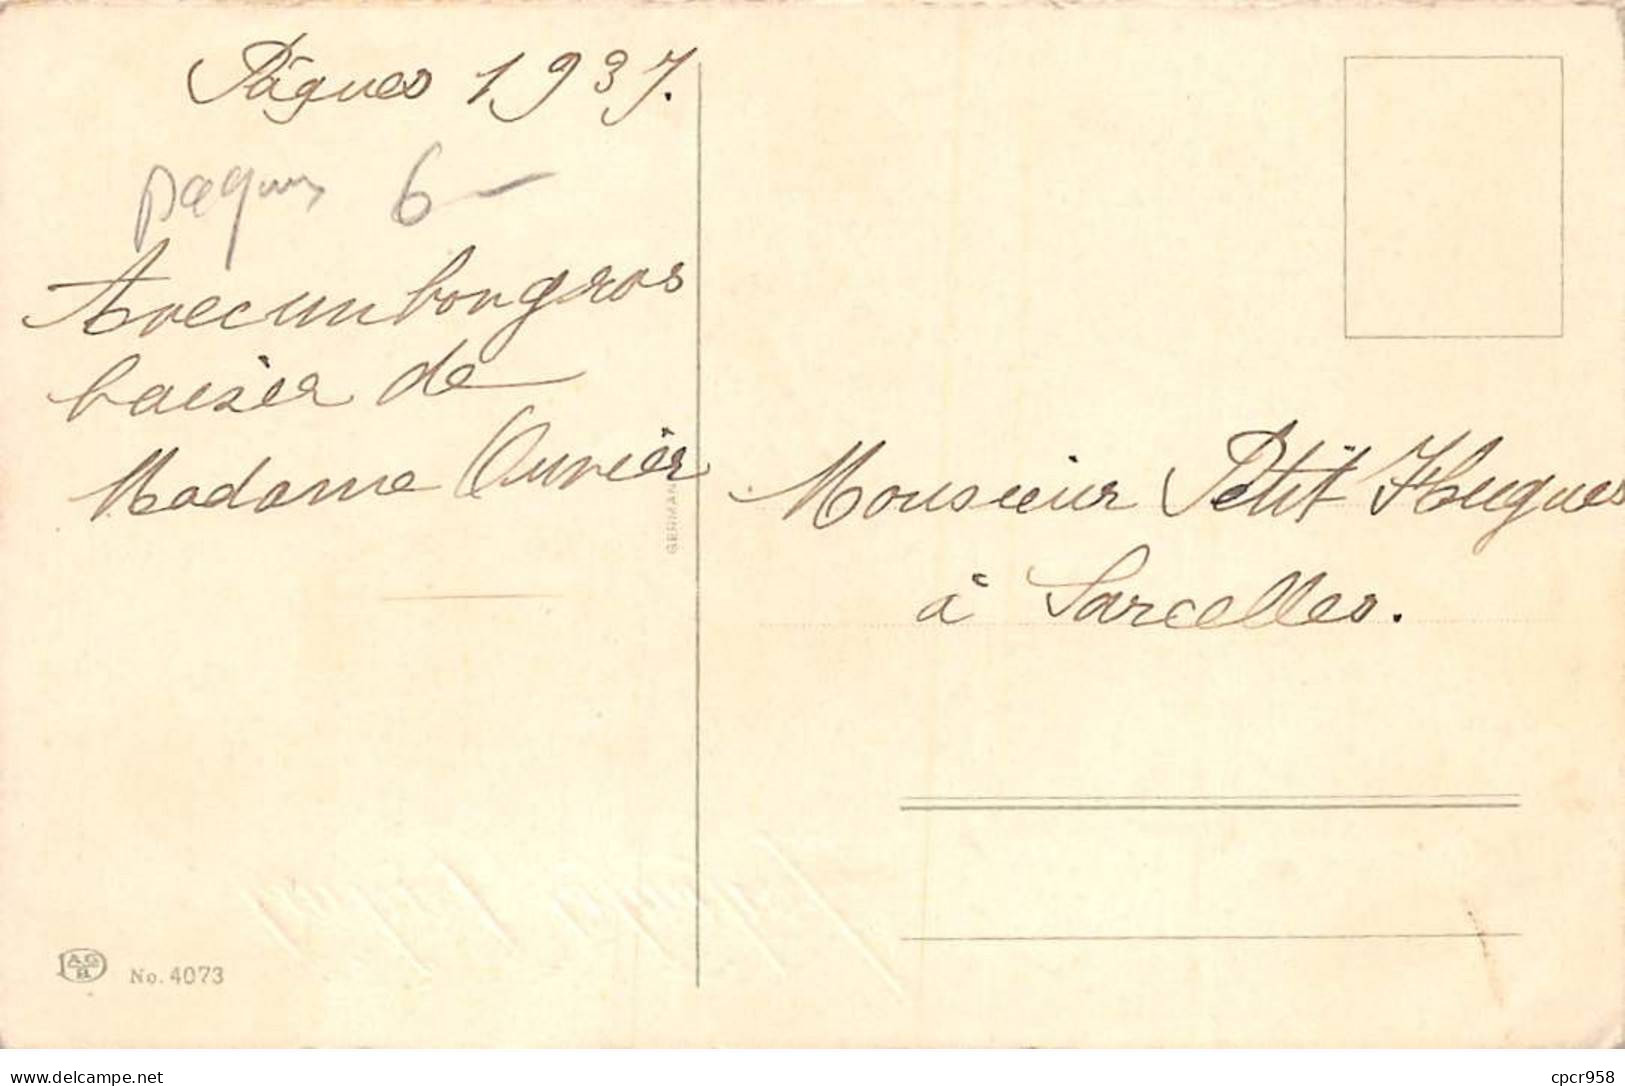 Pâques 1937.
paques 6 —
Avec un bon gros
baiser de
Madame Ouvrier
GERMANY
Monsieur Petit Hugues
à Sarcelles.
No. 4073
delcampe.net
cpcr958